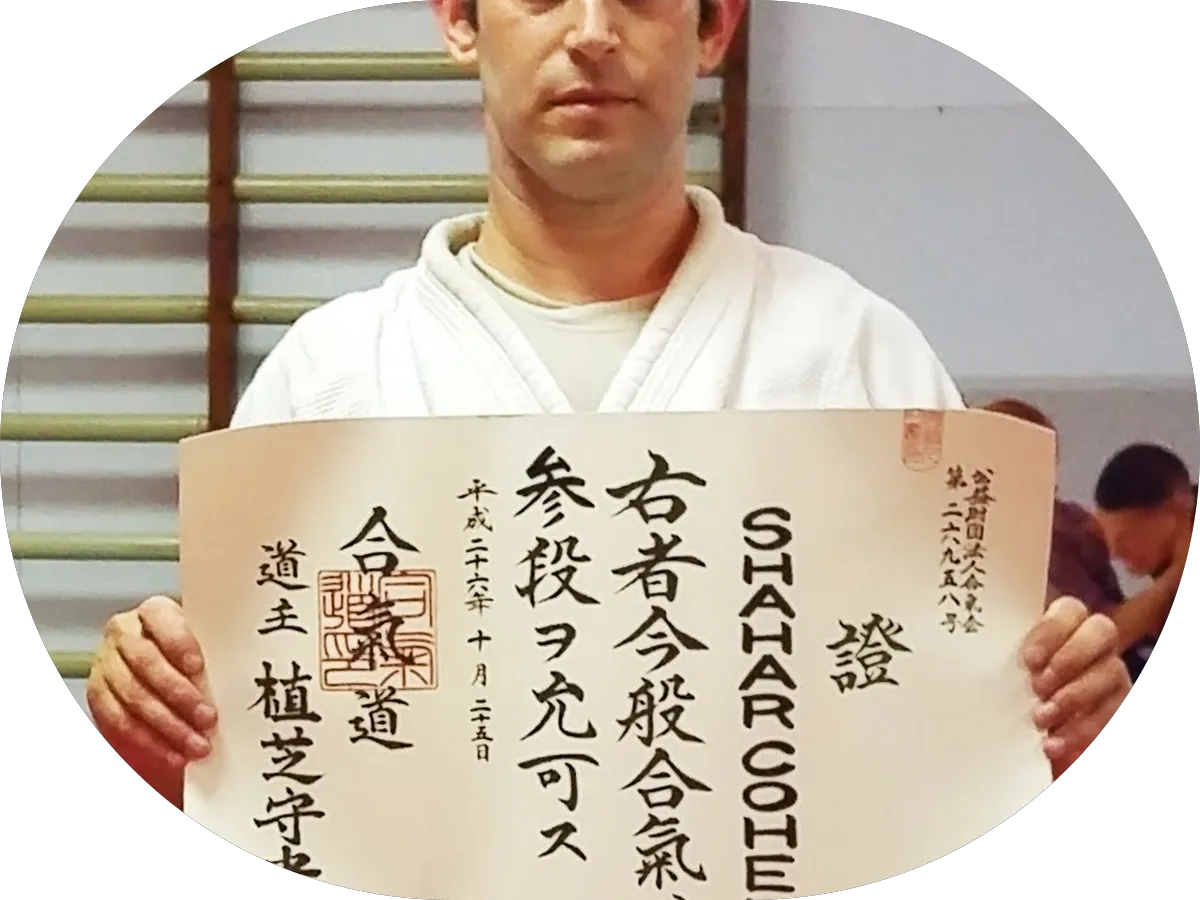 公益財団法人合氣会
第二六九五八号
證
SHAHAR COHE
右者今般合氣
参段ヲ允可ス
平成二十六年十月二十五日
合氣道
道主 植芝守